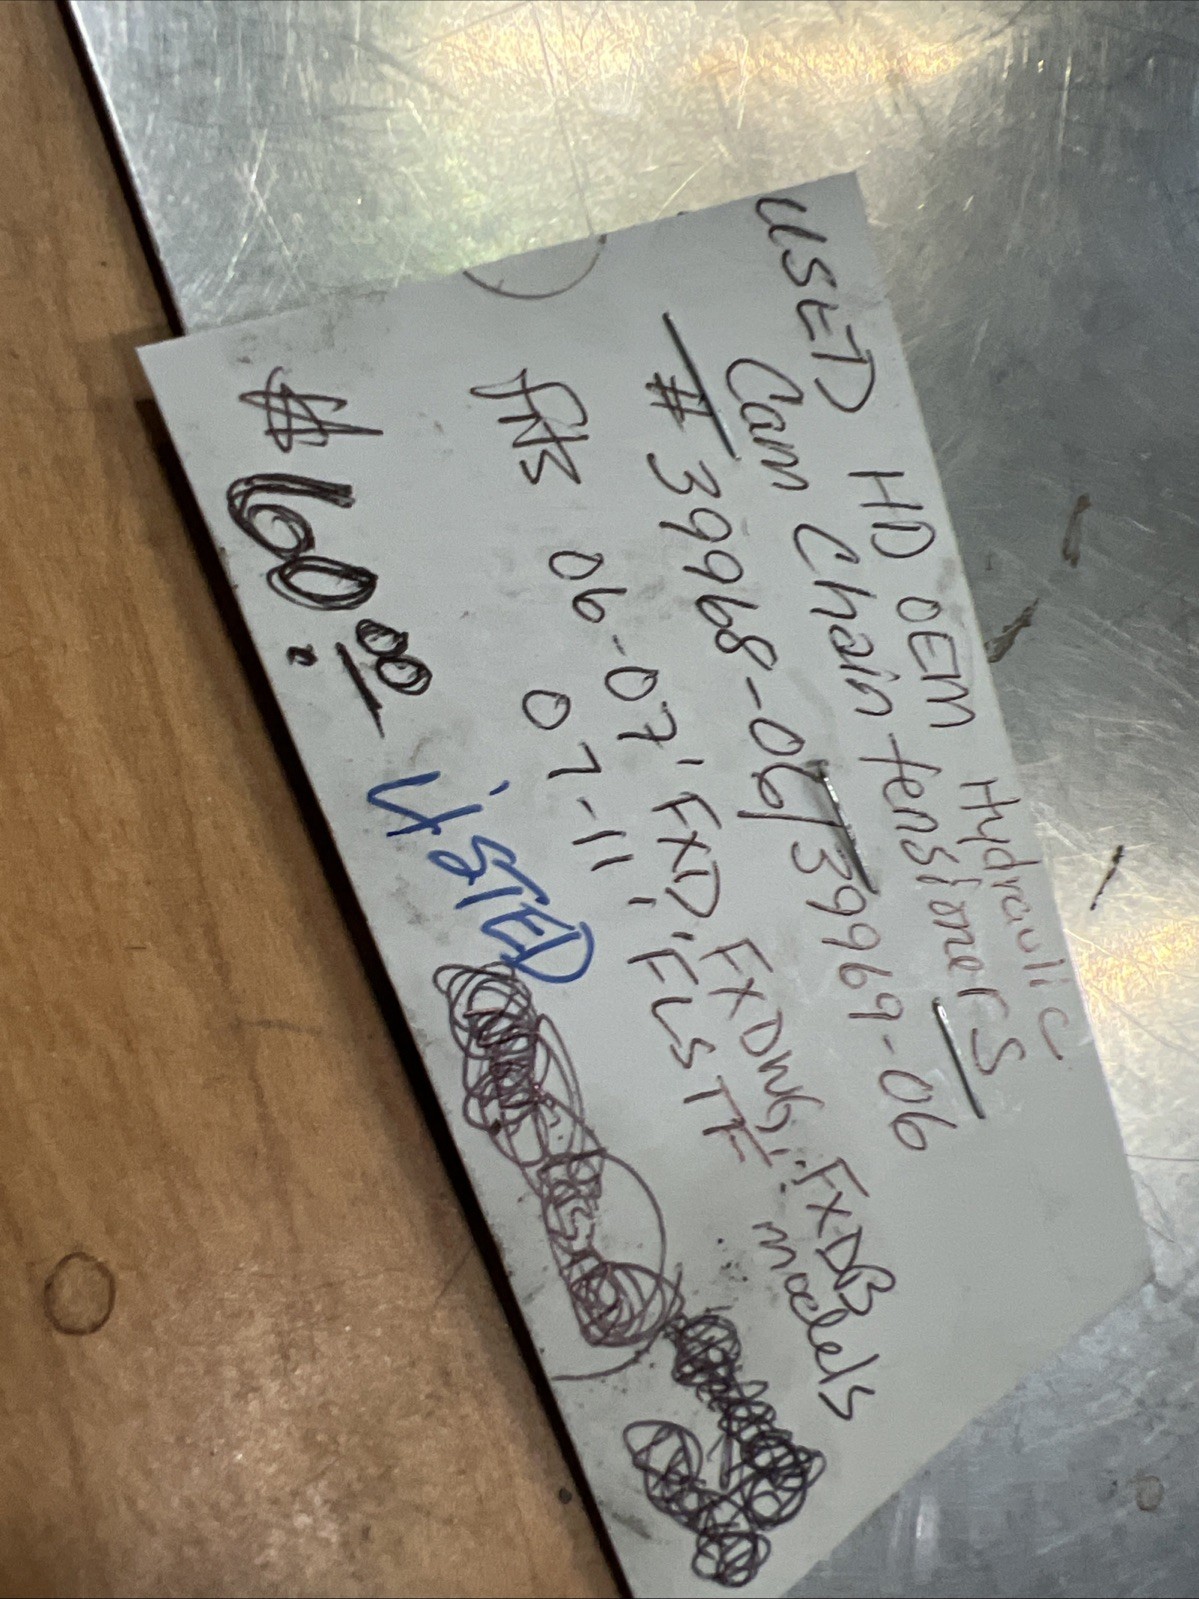 USED HD OEM Hydraulic
Cam Chain tensioners
# 39968-06/39969-06
fits 06-07' FXD, FXDWG, FXDB
07-11, FLSTF models
$60.00 LISTED